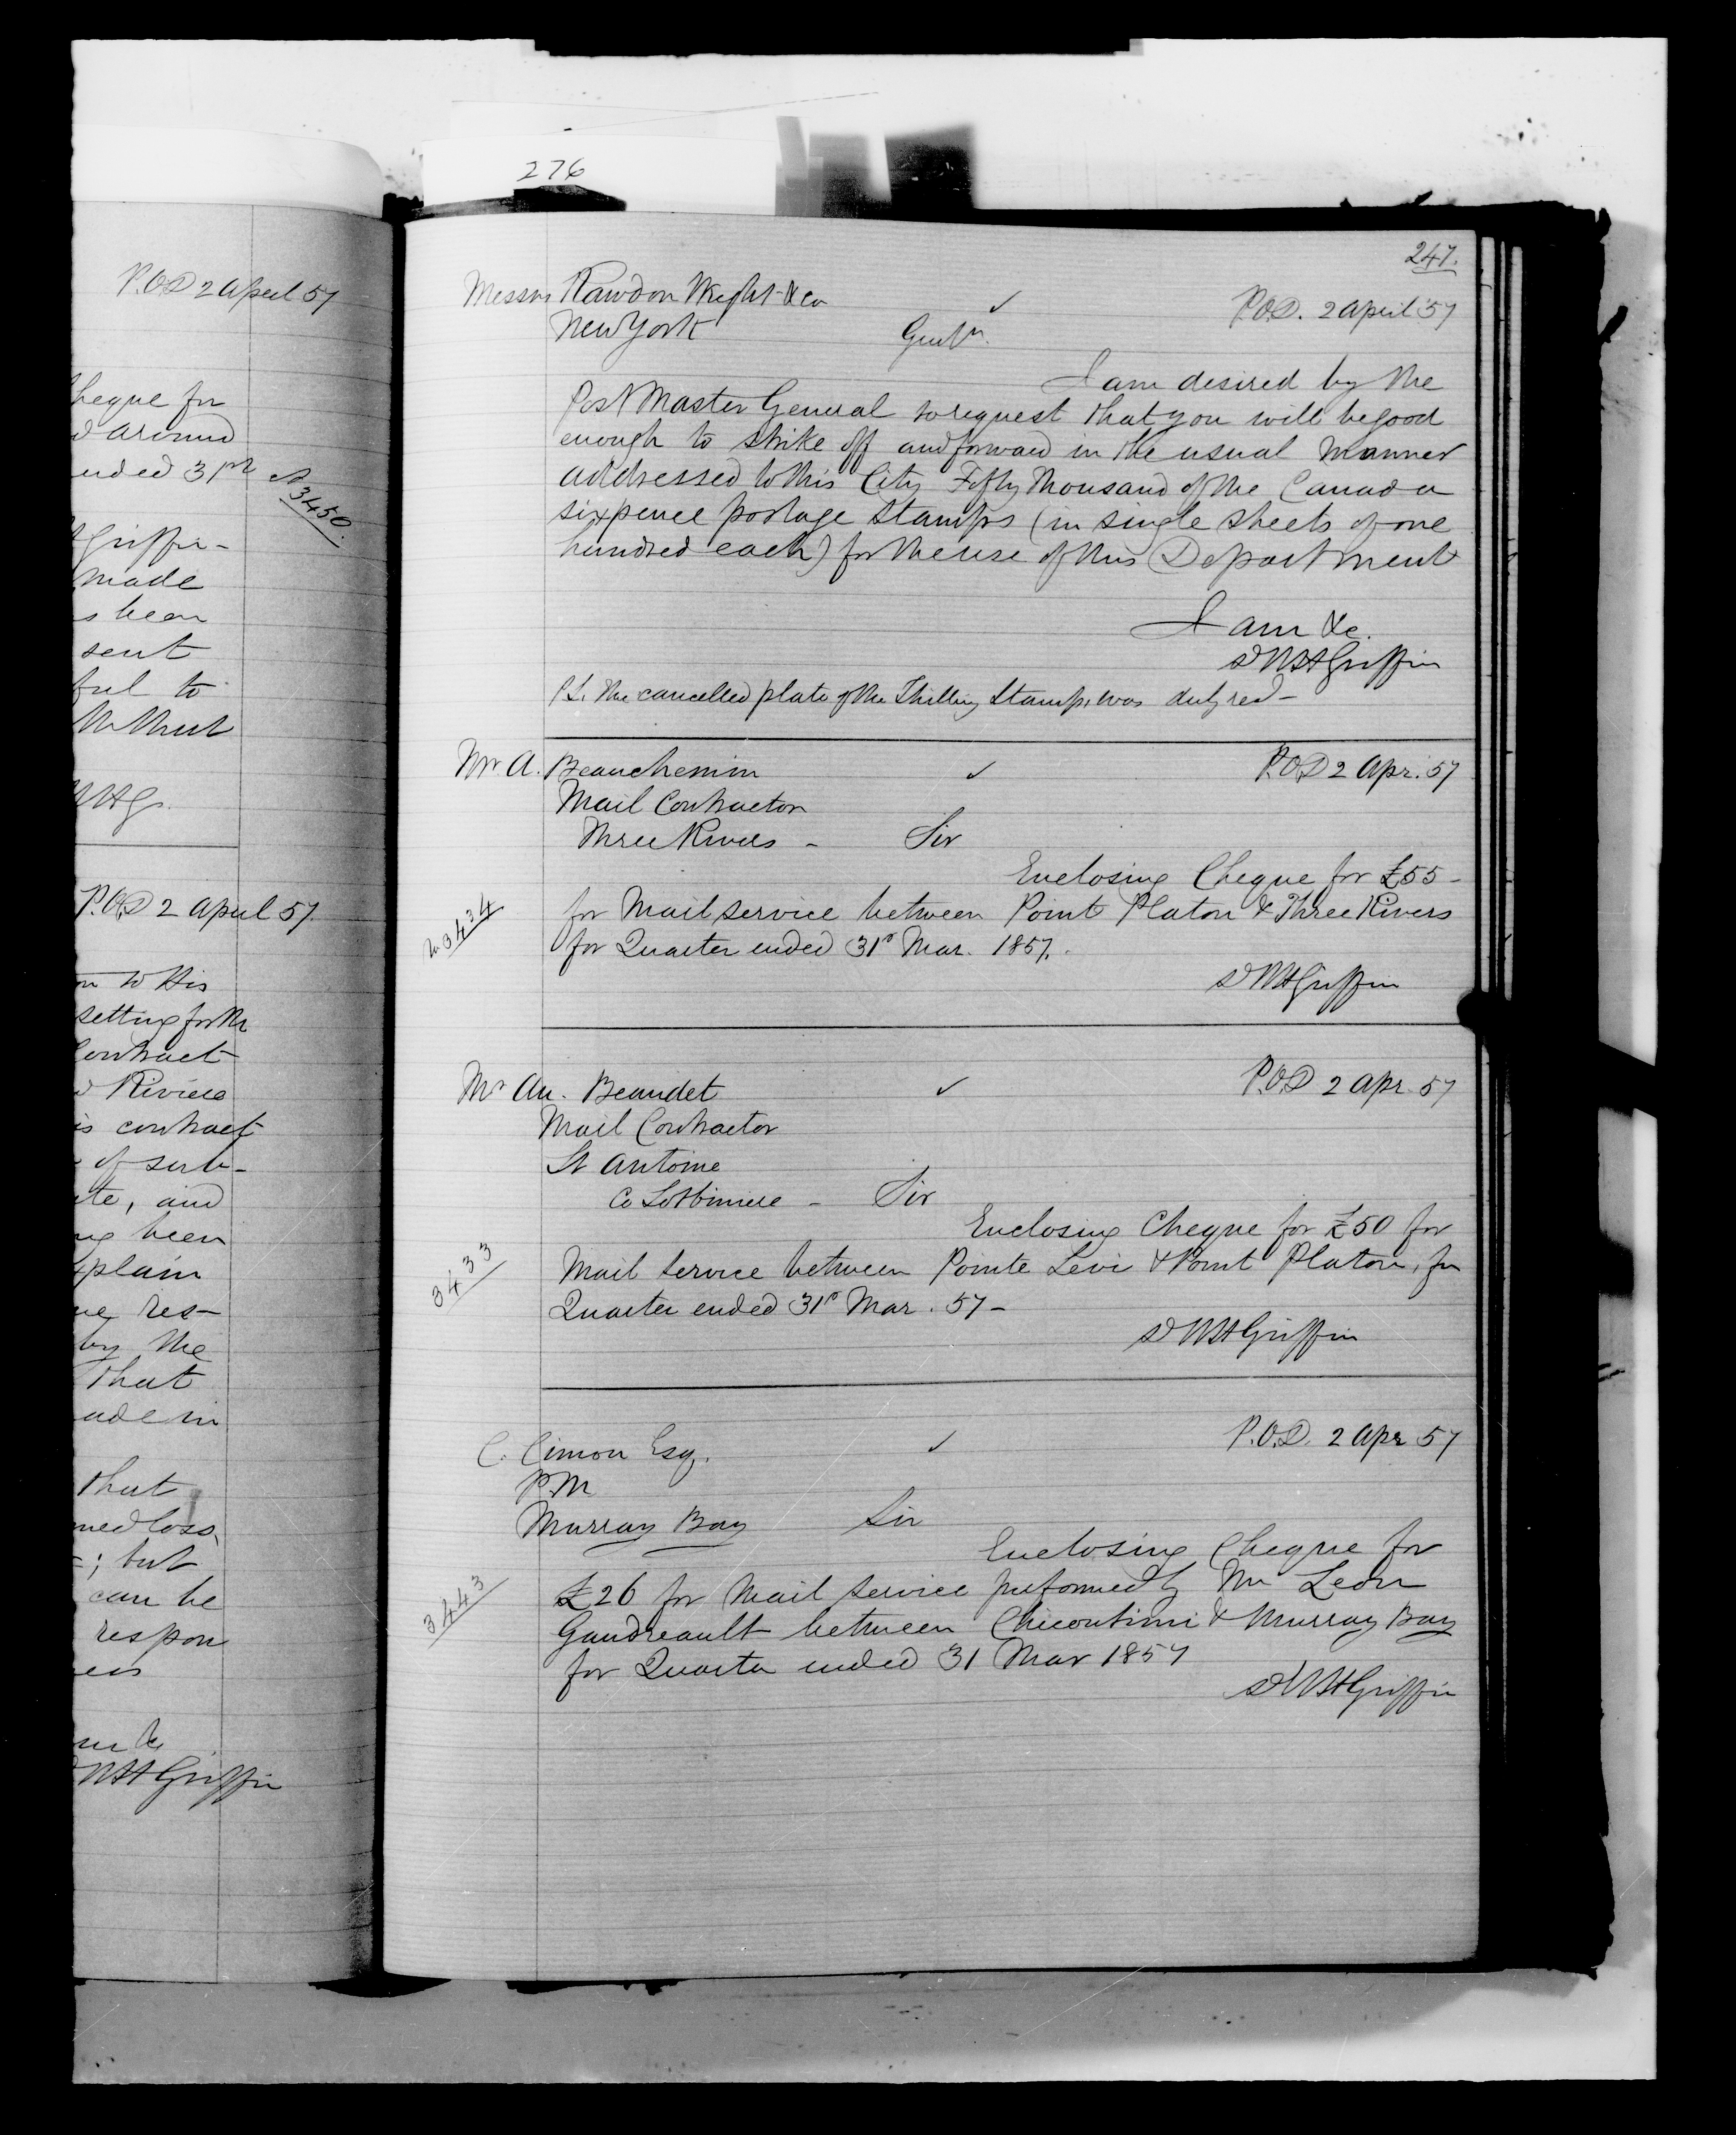 276
P.O.D 2 April 57
heque for
d around
ended 31st
3450
Griffin-
made
s been
sent
ful to
P.O.D 2 April 57.
on to His
setting forth
Contract
d Riviere
is contract
of serv-
ate, and
ng been
xplain
ue res-
by the
that
ade in
that
med loss,
; but
can be
respon
WHGriffin
247.
Messrs Rawdon Wright & Co
New York
P.O.D. 2 April 57
Gentn.
I am desired by the
Post Master General to request that you will be good
enough to strike off and forward in the usual manner
addressed to this City Fifty Thousand of the Canada
sixpence postage stamps (in single sheets of one
hundred each) for the use of this Department
I am &c.
WHGriffin
P.S. The cancelled plate of the Shilling Stamp, was duly recd-
Mr A. Beauchemin
P.O.D 2 Apr. 57
Mail Contractor
Three Rivers - Sir
Enclosing Cheque for £55-
3434
for Mail service between Point Platon & Three Rivers
for Quarter ended 31st Mar. 1857.
WHGriffin
Mr Au. Beaudet
P.O.D 2 Apr. 57
Mail Contractor
St Antoine
Co Lotbiniere - Sir
Enclosing Cheque for £50 for
3433
Mail service between Pointe Levi & Point Platon, for
Quarter ended 31st Mar. 57-
WHGriffin
C. Cimon Esq.
P.O.D. 2 Apr 57
P.M
Murray Bay Sir
Enclosing Cheque for
3443
£26 for Mail service performed by Mr Leon
Gaudreault between Chicoutimi & Murray Bay
for Quarter ended 31 Mar 1857
WHGriffin